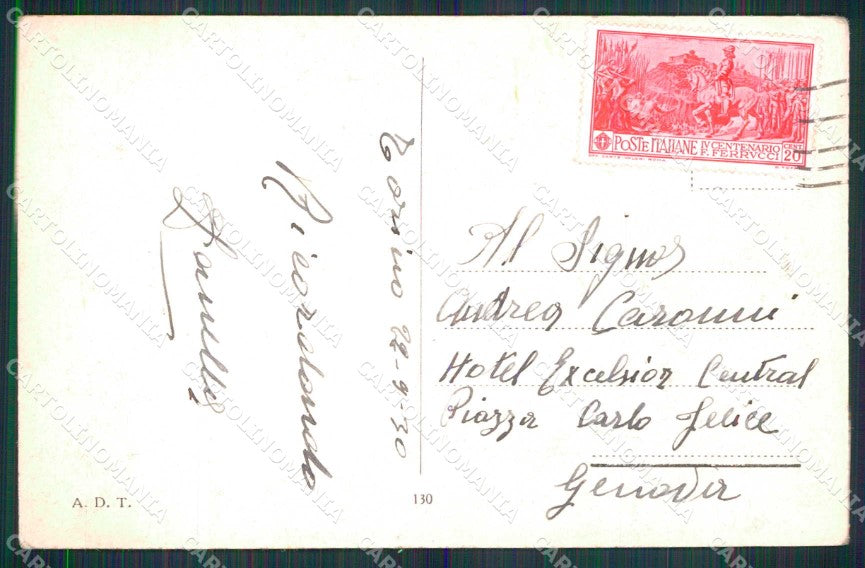 Torino 22-9-30
Ricordando
POSTE ITALIANE IV CENTENARIO F. FERRVCCI CENT 20
Al Signor
Andrea Caronni
Hotel Excelsior Central
Piazza Carlo Felice
Genova
A. D. T.
130
CARTOLINOMANIA